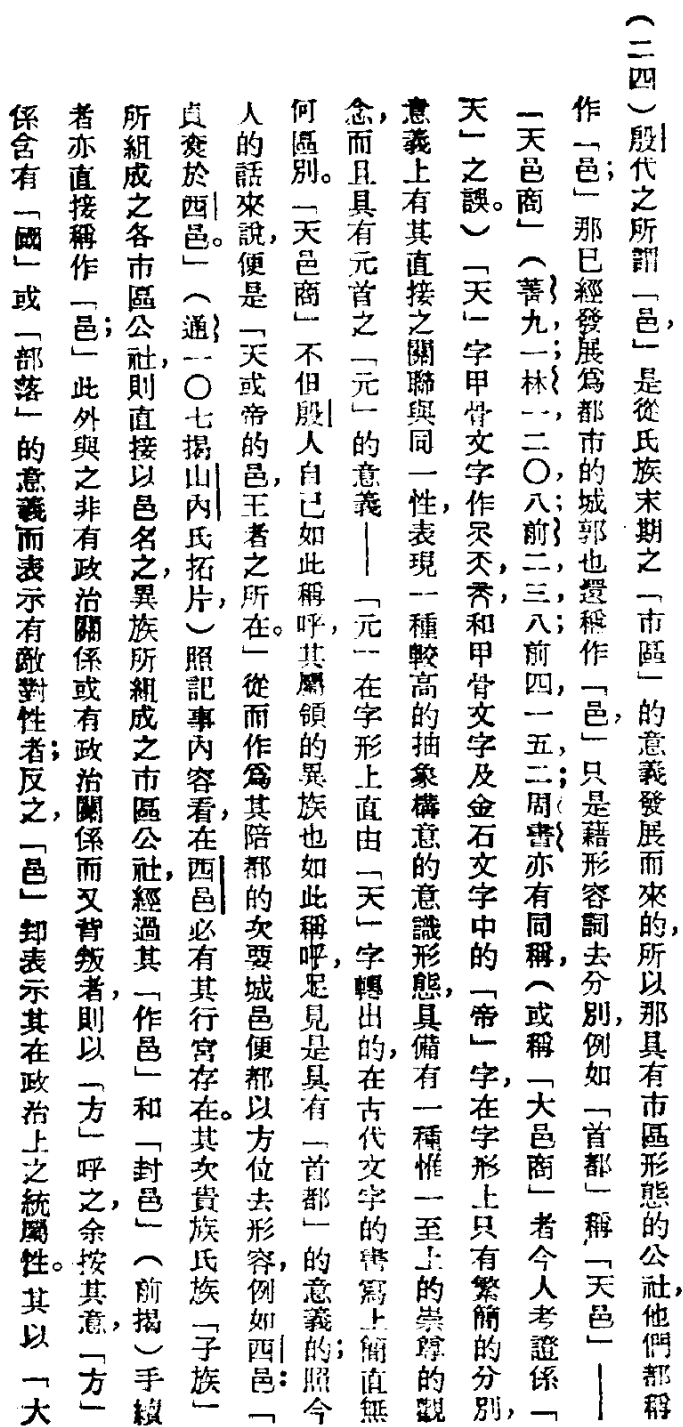 （二四）殷代之所謂「邑，」是從氏族末期之「市區」的意義發展而來的，所以那具有市區形態的公社，他們都稱
作「邑；」那已經發展爲都市的城郭也還稱作「邑，」只是藉形容詞去分別，例如「首都」稱「天邑」——
「天邑商」（菁九一；林一，二〇八；前二，三八；前四，一五，二；周書亦有同稱，（或稱「大邑商」者今人考證係「
天」之誤。）「天」字甲骨文字作和甲骨文字及金石文字中的「帝」字，在字形上只有繁簡的分別，
意義上有其直接之關聯與同一性，表現一種較高的抽象構意的意識形態，具備有一種惟一至上的崇尊的觀
念，而且具有元首之「元」的意義——「元」在字形上直由「天」字轉出的，在古代文字的書寫上簡直無
何區別。「天邑商」不但殷人自己如此稱呼，其屬領的異族也如此稱呼，足見是具有「首都」的意義的；照今
人的話來說，便是「天或帝的邑，王者之所在。」從而作爲其陪都的次要城邑便都以方位去形容，例如西邑：「
貞𡘲於西邑。」（通一〇七揭山內氏拓片，）照記事內容看，在西邑必有其行宮存在。其次貴族氏族「子族」
所組成之各市區公社，則直接以邑名之，異族所組成之市區公社，經過其「作邑」和「封邑」（前揭）手續
者亦直接稱作「邑；」此外與之非有政治關係或有政治關係而又背叛者，則以「方」呼之，余按其意，「方」
係含有「國」或「部落」的意義而表示有敵對性者；反之，「邑」却表示其在政治上之統屬性。其以「大